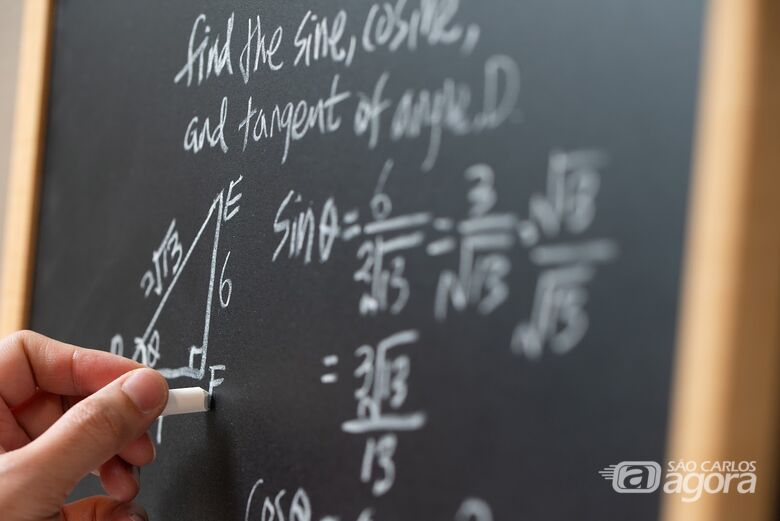 find the sine, cosine,
and tangent of angle D.
E
2√13
6
θ
F
sinθ = 6/2√13 = 3/√13 · √13/√13
= 3√13/13
cosθ =
SÃO CARLOS
agora